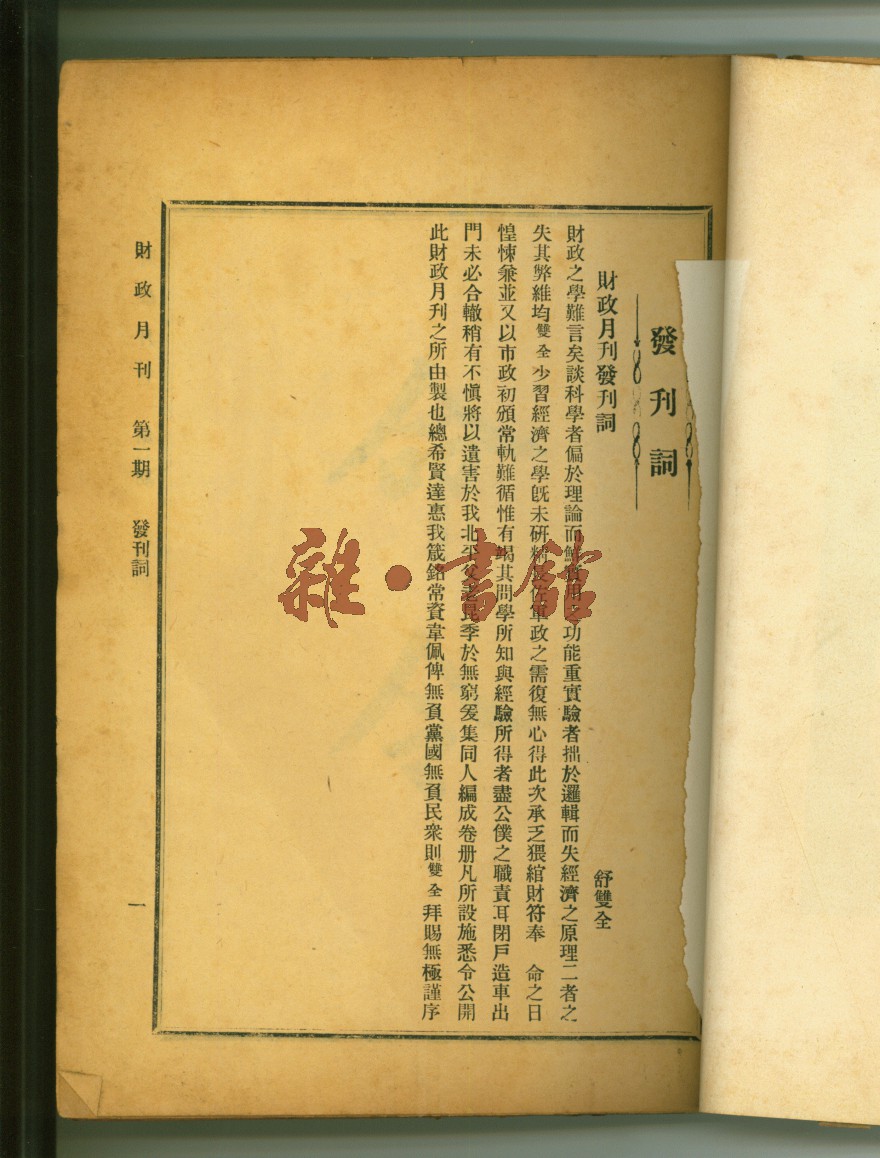 發刊詞
財政月刊發刊詞 舒雙全
財政之學難言矣談科學者偏於理論而鮮實用之功能重實驗者拙於邏輯而失經濟之原理二者之
失其弊維均雙全少習經濟之學旣未研精 佐軍政之需復無心得此次承乏猥綰財符奉 命之日
惶悚兼並又以市政初頒常軌難循惟有竭其問學所知與經驗所得者盡公僕之職責耳閉戶造車出
門未必合轍稍有不愼將以遺害於我北平父老昆季於無窮爰集同人編成卷册凡所設施悉令公開
此財政月刊之所由製也總希賢達惠我箴銘常資韋佩俾無負黨國無負民衆則雙全拜賜無極謹序
財政月刊 第一期 發刊詞 一
雜·書館